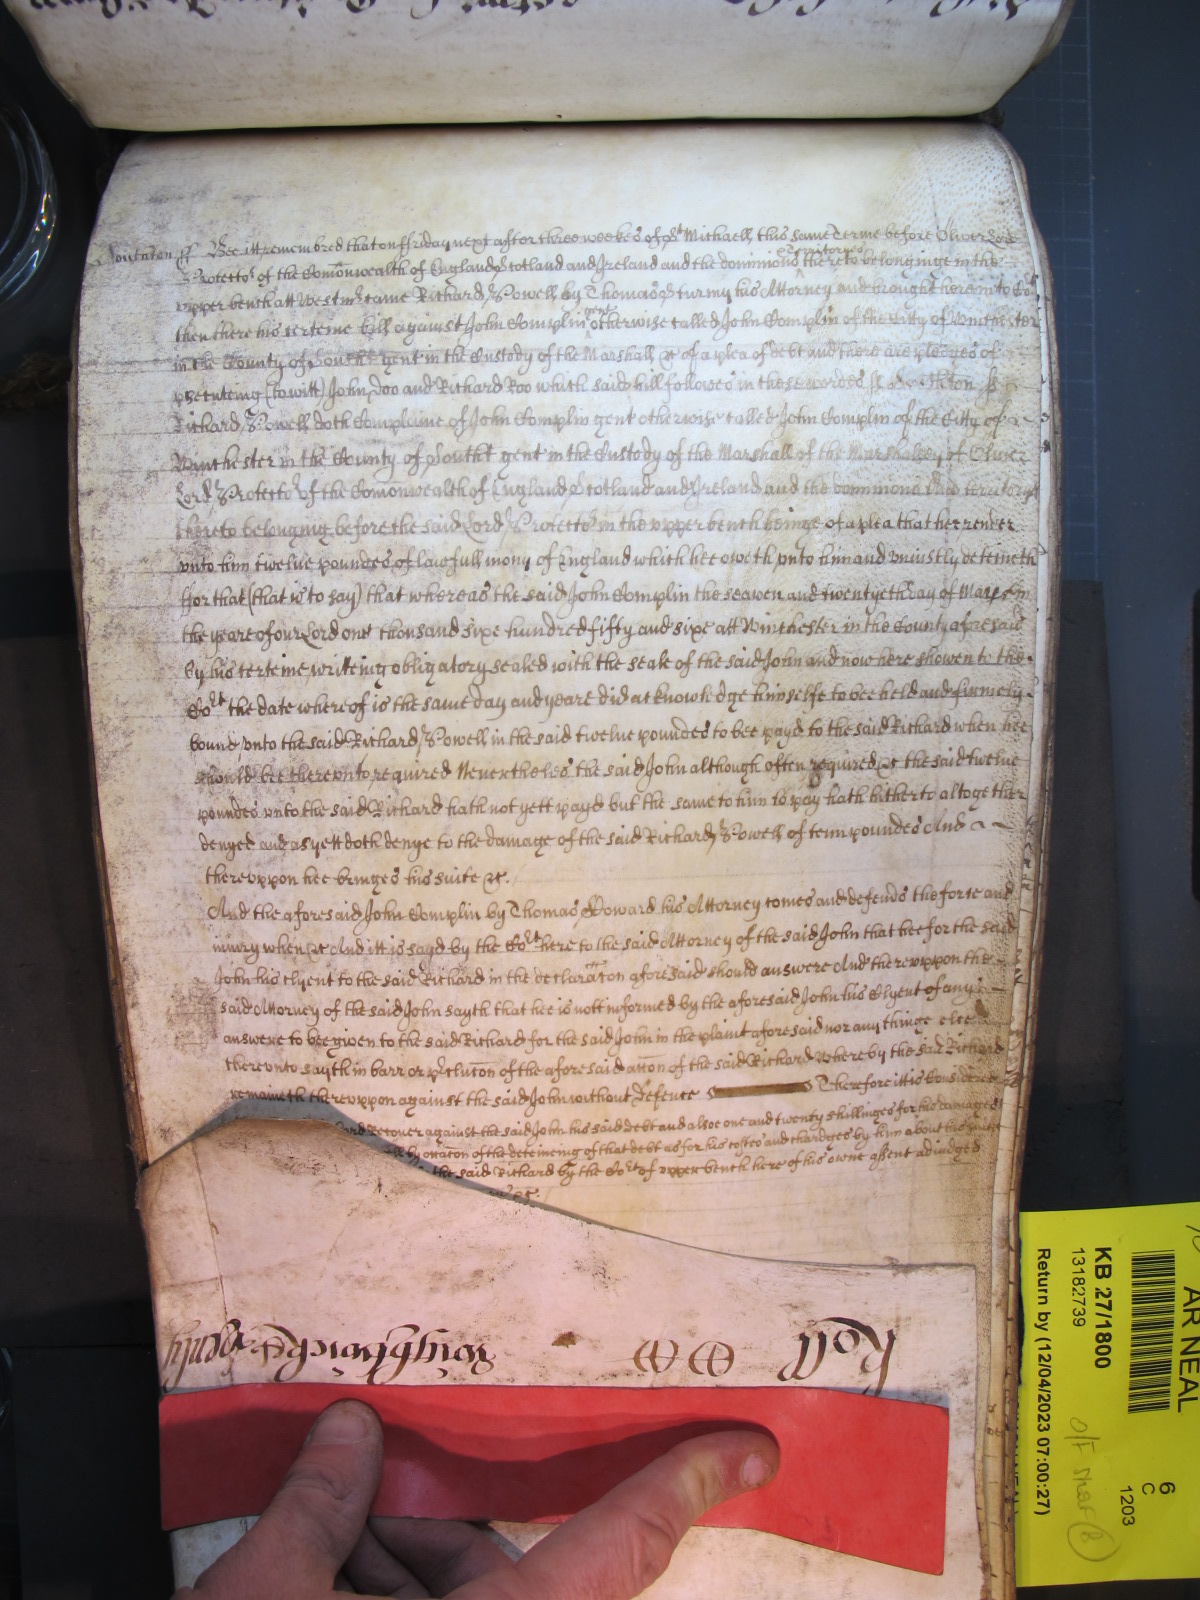 Southton ss Bee itt remembred that on ffriday next after three weekes of St Michaell this same Terme before Oliver Lord
Protector of the Comonwealth of England Scotland and Ireland and the dominions & territories thereto belonginge in the
vpper bench att Westmr came Richard Powell by Thomas Sturmy his Attorney and brought here into Cort
then there his certeine bill against John Complin gent otherwise called John Complin of the Citty of Winchester
in the County of Southt gent in the Custody of the Marshall &c of a plea of debt and there are pledges of
prsecuteing (to witt) John Doo and Richard Roo which said bill followes in these wordes ss Southton ss
Richard Powell doth Complaine of John Complin gent otherwise called John Complin of the Citty of
Winchester in the County of Southt gent in the Custody of the Marshall of the Marshalsey of Oliver
Lord Protector of the Comonwealth of England Scotland and Ireland and the dominions and territoryes
thereto belonging before the said Lord Protector in the vpper bench beinge of a plea that hee render
vnto him twelve poundes of lawfull mony of England which hee oweth vnto him and vniustly deteineth
ffor that (that is to say) that whereas the said John Complin the seaven and twentyeth day of May in
the yeare of our Lord one thousand sixe hundred fifty and sixe att Winchester in the County aforesaid
by his certeine writeing obligatory sealed with the seale of the said John and now here showen to the
Cort the date whereof is the same day and yeare did acknowledge himselfe to bee held and firmely
bound vnto the said Richard Powell in the said twelve poundes to bee payd to the said Richard when hee
should bee therevnto required Nevertheles the said John although often required &c the said twelve
poundes vnto the said Richard hath not yett payd but the same to him to pay hath hitherto altogether
denyed and as yett doth denye to the damage of the said Richard Powell of tenn poundes And
therevppon hee bringes his suite &c.
And the aforesaid John Complin by Thomas Howard his Attorney comes and defends the force and
iniury when &c And itt is sayd by the Cort here to the said Attorney of the said John that hee for the said
John his clyent to the said Richard in the declaracon aforesaid should answere And therevppon the
said Attorney of the said John sayth that hee is nott informed by the aforesaid John his Clyent of any
answere to bee given to the said Richard for the said John in the plaint aforesaid nor any thinge else
therevnto sayth in barr or prclucon of the aforesaid accon of the said Richard whereby the said Richard
remaineth therevppon against the said John without defence Therefore itt is Considered
Recover against the said John his said debt and alsoe one and twenty shillinges for his damages
by occacon of the deteineing of that debt as for his costes and chardges by him about his suite
the said Richard by the Cort of vpper bench here of his owne assent adiudged
&c.
Roll
KB 27/1800
13182739
Return by (12/04/2023 07:00:27)
AR NEAL
6
C
1203